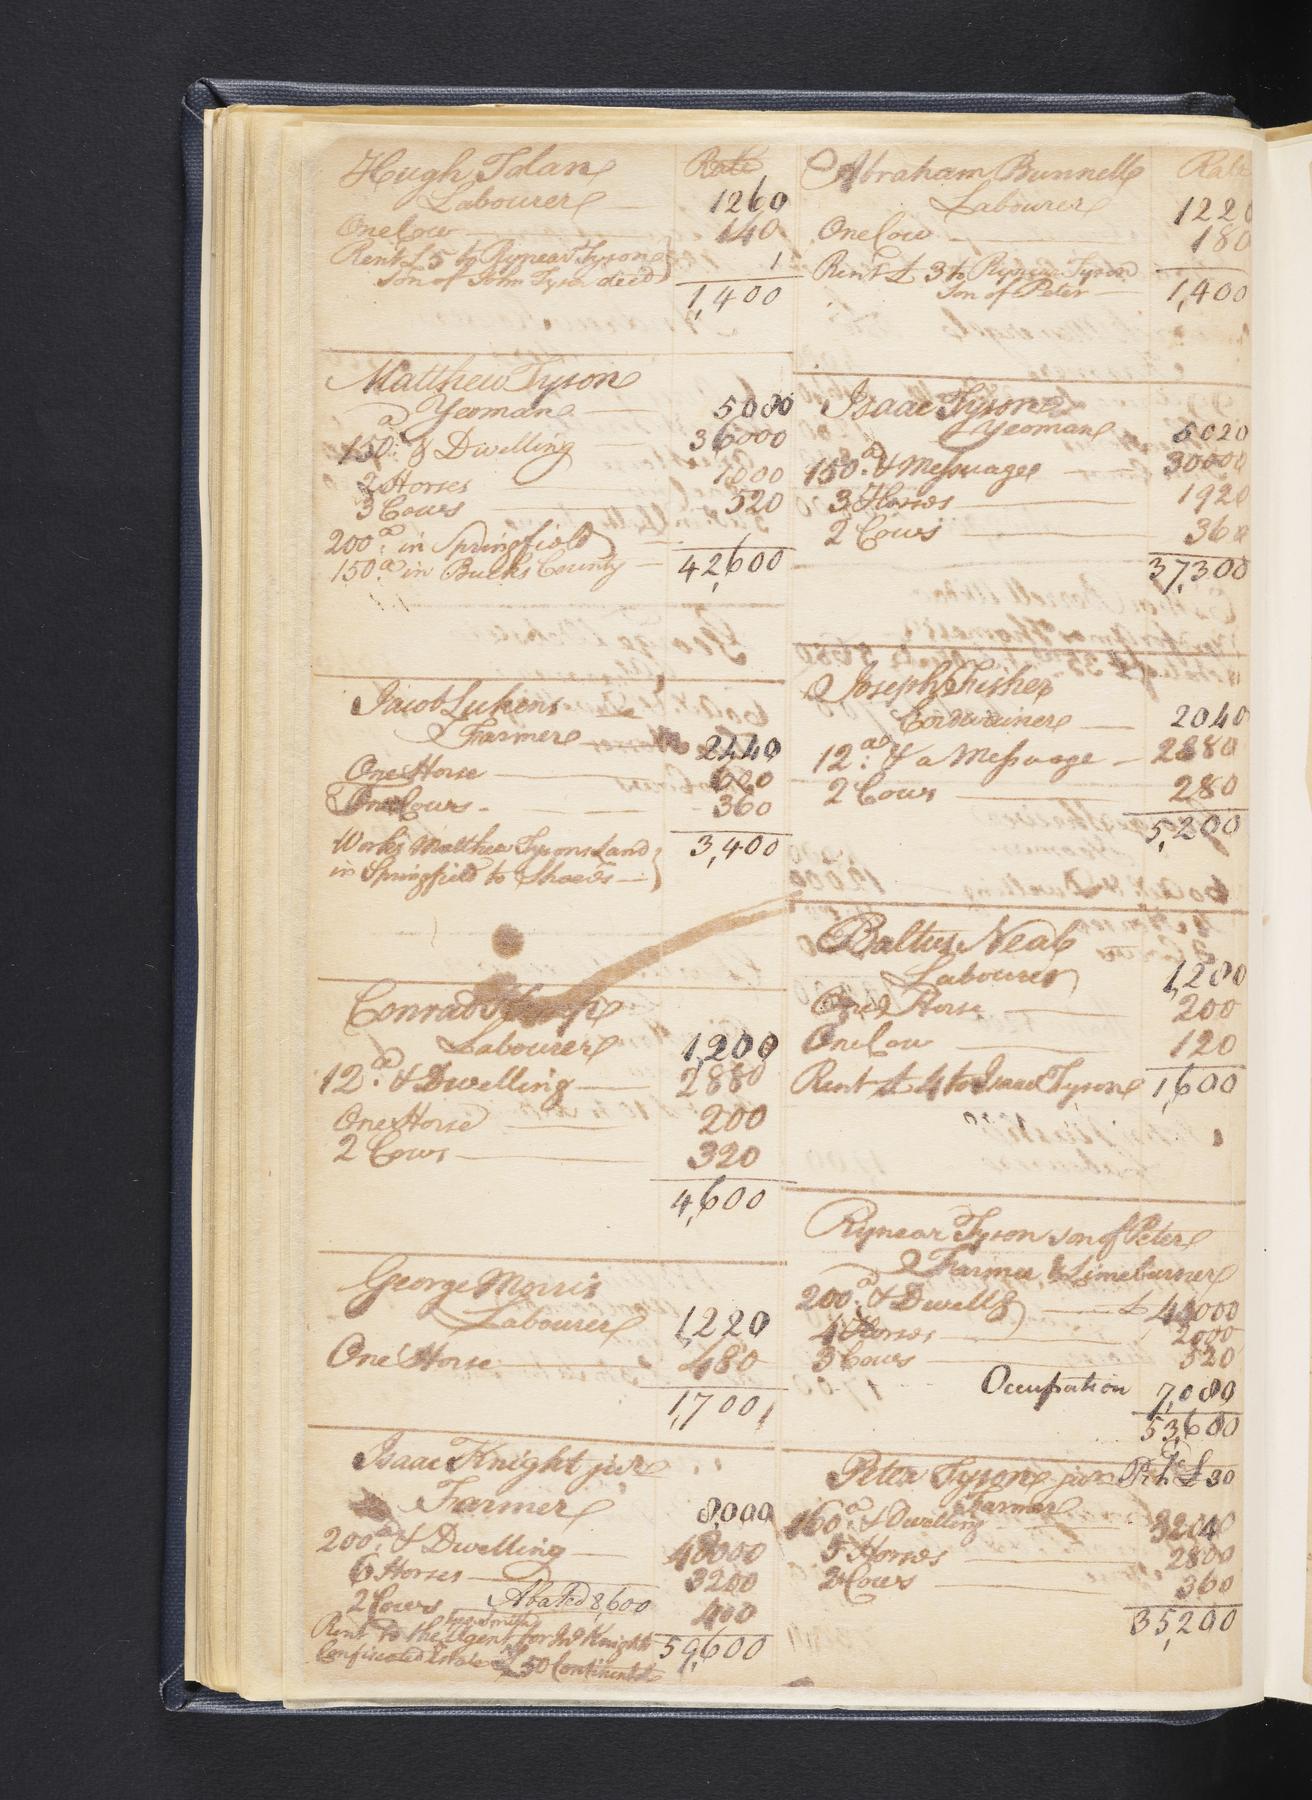 Hugh Tolan Rate
Labourer 1260
One Cow 140
Rent £5 to Rynear Tyson
Son of John Tyson deced
1,400
Matthew Tyson
Yeoman 5080
150a & Dwelling 36000
2 Horses 1000
3 Cows 520
200a in Springfield
150a in Bucks County
42,600
Jacob Lukens
Farmer 2440
One Horse 600
Cows 360
Works Matthew Tysons Land
in Springfield to Shares
3,400
Conrad
Labourer 1,200
12a & Dwelling 2880
One Horse 200
2 Cows 320
4,600
George Morris
Labourer 1,220
One Horse 480
1,700
Isaac Knight junr
Farmer 8,000
200a & Dwelling 48000
6 Horses 3200
2 Cows Abated 8,600 400
Smith
Rent to the Agent for Jno Knights
Confiscated Estate £50 Continental
59,600
Abraham Bunnell Rate
Labourer 1220
One Cow 180
Rent £3 to Rynear Tyson
Son of Peter
1,400
Isaac Tyson
Yeoman 5020
150a & Messuage 30000
3 Horses 1920
2 Cows 360
37,300
Joseph Fisher
Cordwainer 2040
12a & a Messuage 2880
2 Cows 280
5,200
Baltus Neal
Labourer 1,280
One Horse 200
One Cow 120
Rent £4 to Isaac Tyson 1,600
Rynear Tyson son of Peter
Farmer & Limeburner
200a & Dwellg
4 Horses 2000
3 Cows 520
Occupation 7,080
53,600
Peter Tyson junr £30
Farmer
160a & Dwelling 32040
5 Horses 2800
2 Cows 360
35,200